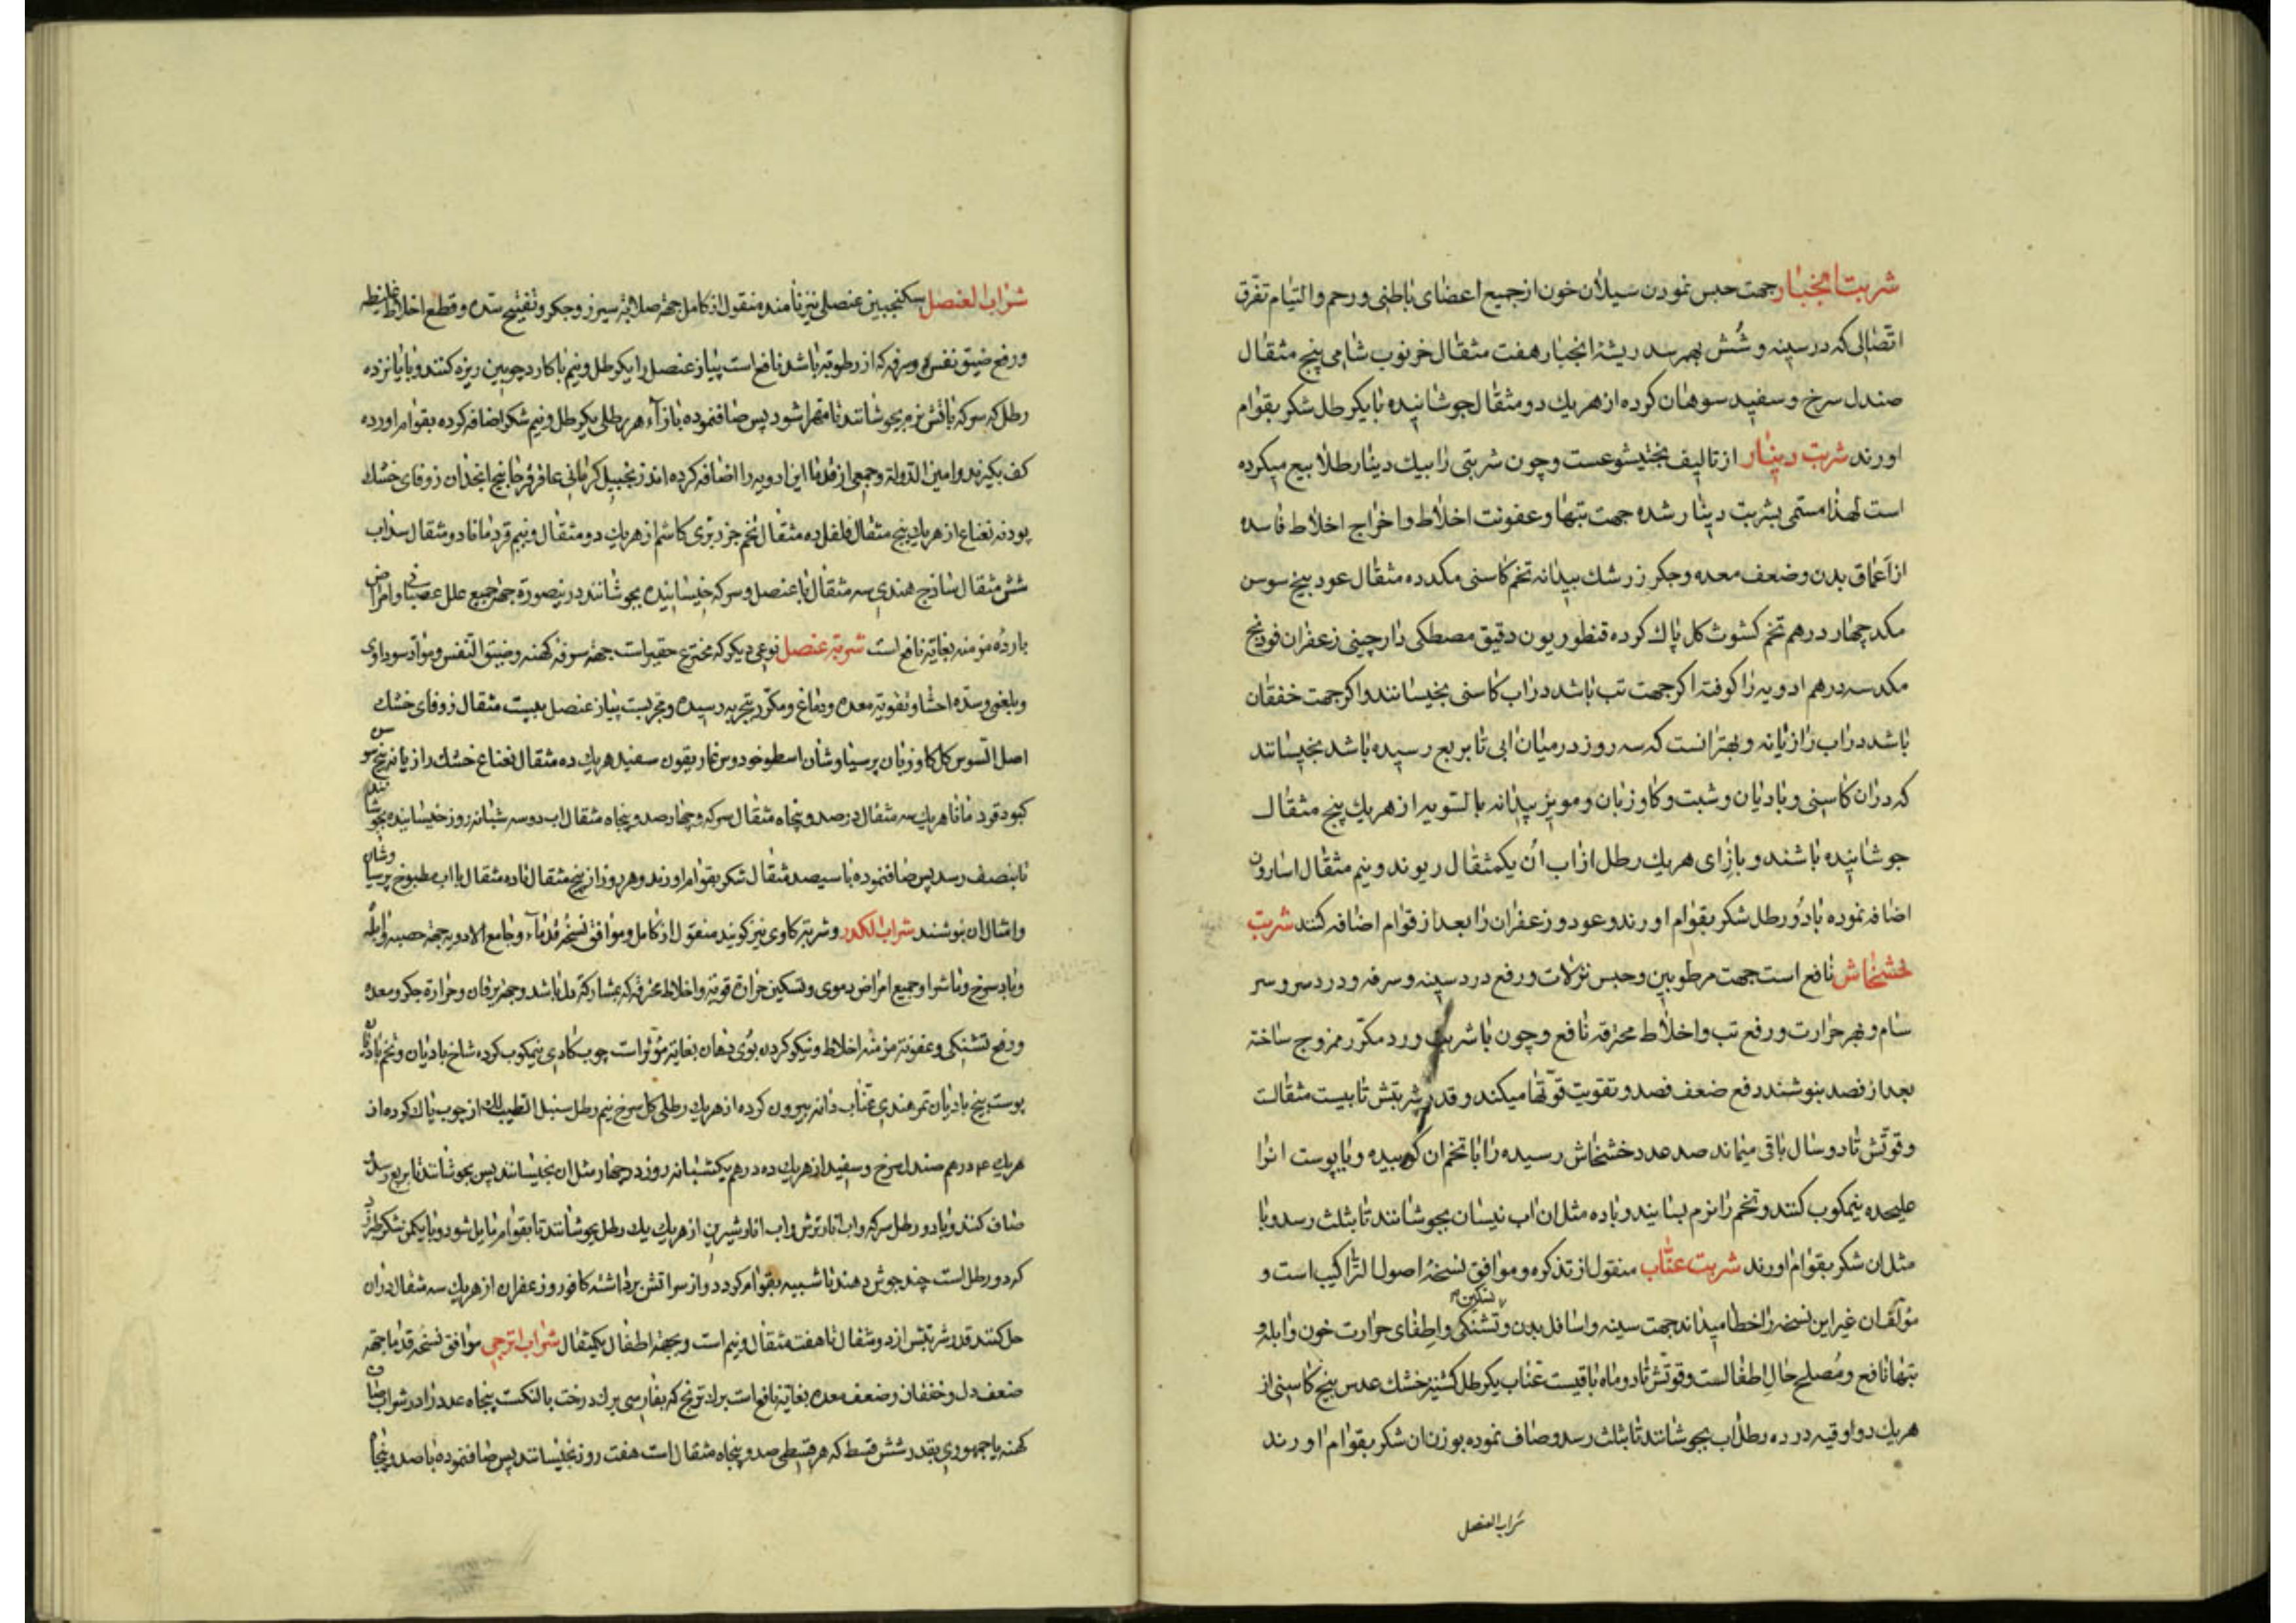 شربت انجبار جهت حبس نمودن سیلان خون از جمیع اعضای باطنی و رحم و التیام تفرق
اتصالی که در سینه و شش بهم رسد ریشۀ انجبار هفت مثقال خرنوب شامی پنج مثقال
صندل سرخ و سفید سوهان کرده از هریك دو مثقال جوشانیده با یکرطل شکر بقوام
اورند شربت دینار از تالیف بختیشوعست و چون شربتی را بیك دینار طلا بیع میکرده
است لهذا مسمی بشربت دینار شده جهت تبها و عفونت اخلاط و اخراج اخلاط فاسده
از اعماق بدن و ضعف معده و جکر زرشك بیدانه تخم کاسنی مکد ده مثقال عود بیخ سوسن
مکد چهار درهم تخم کشوث کل پاك کرده قنطوریون دقیق مصطکی دارچینی زعفران فودنج
مکد سه درهم ادویه را کوفته اکر جهت تب باشد در اب کاسنی بخیسانند و اکر جهت خفقان
باشد در اب رازیانه و بهتر انست که سه روز در میان ابی تا بربع رسیده باشد بخیسانند
که در ان کاسنی و بادیان و شبت و کاوزبان و مویز بیدانه بالسویه از هریك پنج مثقال
جوشانیده باشند و بازای هریك رطل از اب ان یکمثقال ریوند و نیم مثقال اسارون
اضافه نموده با دو رطل شکر بقوام اورند و عود و زعفران را بعد از قوام اضافه کنند شربت
خشخاش نافع است جهت مرطوبین و حبس نزلات و رفع درد سینه و سرفه و درد سر و سر
سام و نهر حرارت و رفع تب و اخلاط محترقه نافع و چون با شربت ورد مکرر ممزوج ساخته
بعد از فصد بنوشند رفع ضعف فصد و تقویت قوتها میکند و قدر شربتش تا بیست مثقالست
و قوتش تا دو سال باقی میماند صد عدد خشخاش رسیده را با تخم ان کوبیده و یا پوست انرا
علیحده نیمکوب کنند و تخم را نرم بسایند و با ده مثل ان اب نیسان بجوشانند تا بثلث رسد و با
مثل ان شکر بقوام اورند شربت عناب منقول از تذکره و موافق نسخۀ اصول التراکیب است و
مؤلفان غیر این نسخه را خطا میداند جهت سینه و اسافل بدن و تسکین تشنکی و اطفای حرارت خون و ابله و
تبها نافع و مصلح حال اطفالست و قوتش تا دو ماه باقیست عناب یکرطل کشنیز خشك عدس بیخ کاسنی از
هریك دو اوقیه در ده رطل اب بجوشانند تا بثلث رسد و صاف نموده بوزن ان شکر بقوام اورند
شراب العنصل
شراب العنصل سکنجبین عنصلی نیز نامند منقول از کامل جهة صلابة سپرز و جکر و تفتیح سده و قطع اخلاط غلیظه
و رفع ضیق نفس و سرفه که از رطوبة باشد نافع است پیاز عنصل را یکرطل و نیم با کارد چوبین ریزه کنند و با پانزده
رطل سرکه باتش نرم بجوشانند تا مهرا شود پس صافنموده بازآء هر رطلی یکرطل و نیم شکر اضافه کرده بقوام اورده
کف بکیرند و امین الدولة و جمعی از قدما این ادویه را اضافه کرده اند زنجبیل کرمانی عاقرقرحا بیخ انجدان زوفای خشك
پودنه نعناع از هریك پنج مثقال فلفل ده مثقال تخم جزر بری کاشم از هریك دو مثقال و نیم قردمانا دو مثقال سداب
شش مثقال ساذج هندی سه مثقال با عنصل و سرکه خیسانیده بجوشانند درینصورة جهة جمیع علل عصبانی و امراض
بارده مزمنه بغایة نافع است شربة عنصل نوعی دیکر که مخترع حقیر است جهة سرفۀ کهنه و ضیق النفس و مواد سوداوی
و بلغمی و سدۀ احشا و تقویة معده و دماغ و مکرر بتجربه رسیده و مجربست پیاز عنصل بیست مثقال زوفای خشك
اصل السوس کل کاوزبان پرسیاوشان اسطوخودوس غاریقون سفید هریك ده مثقال نعناع خشك رازیانه بیخ سوسن
کبود قردمانا هریك سه مثقال در صد و پنجاه مثقال سرکه و چهار صد و پنجاه مثقال اب دو سه شبانه روز خیسانیده بجوشانند
تا بنصف رسد پس صافنموده با سیصد مثقال شکر بقوام اورند و هر روز از پنج مثقال تا ده مثقال با اب مطبوخ پرسیاوشان
و امثال ان بنوشند شراب الکدر و شربة کاوی نیز کویند منقول از کامل و موافق نسخۀ قدمآء و جامع الادویه جهة حصبه و ابله
و باد سرخ و ماشرا و جمیع امراض دموی و تسکین حرارة قویة و اخلاط محرقه که بمشارکة دل باشد و جهة یرقان و حرارة جکر و معده
و رفع تشنکی و عفونة مزمنه اخلاط و نیکو کردن بوی دهان بغایة مؤثر است چوب کادی نیمکوب کرده شاخ بادیان و تخم بادیان
پوست بیخ بادیان تمر هندی عناب دانه بیرون کرده از هریك رطلی کل سرخ نیم رطل سنبل الطیب لك از چوب پاك کرده از
هریك ۴ درهم صندل سرخ و سفید از هریك ده درهم یکشبانه روز در چهار مثل ان بخیسانند پس بجوشانند تا بربع رسد
صاف کنند و با دو رطل سرکه و اب انار ترش و اب انار شیرین از هریك یك رطل بجوشانند تا بقوام مایل شود و با یکمن شکر طبرزد
که دو رطل است چند جوش دهند تا شبیه بقوام کردد و از سر اتش برداشته کافور و زعفران از هریك سه مثقال در ان
حل کنند قدر شربتش از دو مثقال تا هفت مثقال و نیم است و بجهة اطفال یکمثقال شراب اترجی موافق نسخۀ قدما جهة
ضعف دل و خفقان و ضعف معده بغایة نافع است برك ترنج که بفارسی برك درخت بالنکست پنجاه عدد را در شراب صاف
کهنه یا جمهوری بقدر شش قسط که هر قسطی صد و پنجاه مثقال است هفت روز بخیسانند پس صافنموده با صد و پنجاه